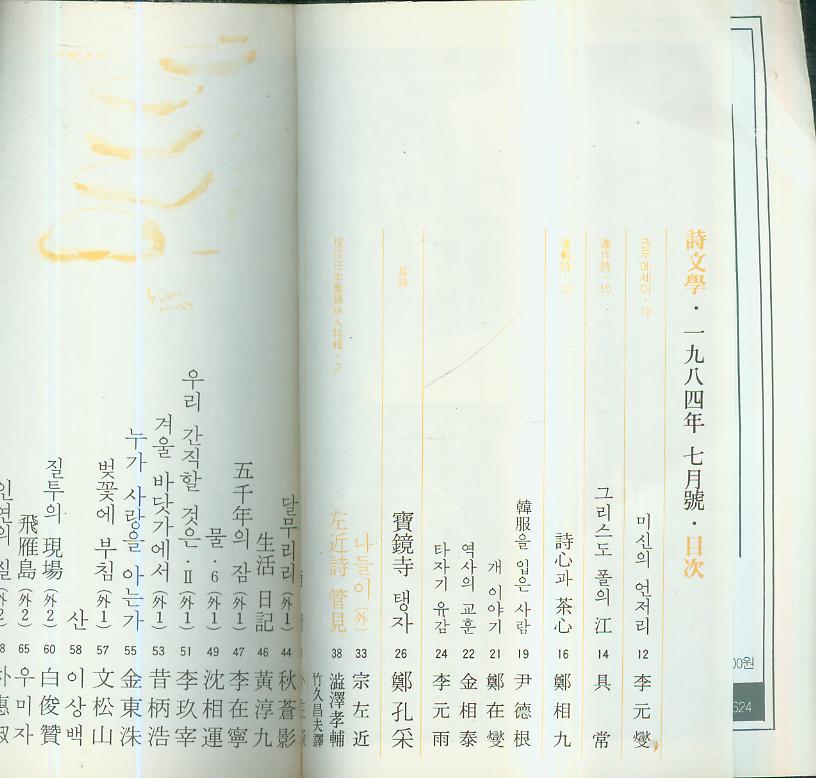 詩·文學 · 一九八四年 七月號 · 目次
권두에세이·12
미신의 언저리 12 李元燮
連作詩·15
그리스도 폴의 江 14 具 常
連載詩·12
詩心과 茶心 16 鄭相九
韓服을 입은 사람 19 尹德根
개 이야기 21 鄭在燮
역사의 교훈 22 金相泰
타자기 유감 24 李元雨
長詩
寶鏡寺 탱자 26 鄭孔采
現役日本重鎭詩人特輯·2
나들이 (外) 33 宗左近
左近詩 管見 38 澁澤孝輔
竹久昌夫譯
달무리리 (外1) 44 秋蒼影
生活 日記 46 黃淳九
五千年의 잠 (外1) 47 李在寧
물·6 (外1) 49 沈相運
우리 간직할 것은·Ⅱ (外1) 51 李玖宰
겨울 바닷가에서 (外1) 53 昔柄浩
누가 사랑을 아는가 55 金東洙
벚꽃에 부침 (外1) 57 文松山
산 58 이상백
질투의 現場 (外2) 60 白俊贊
飛雁島 (外2) 65 우미자
00원
624